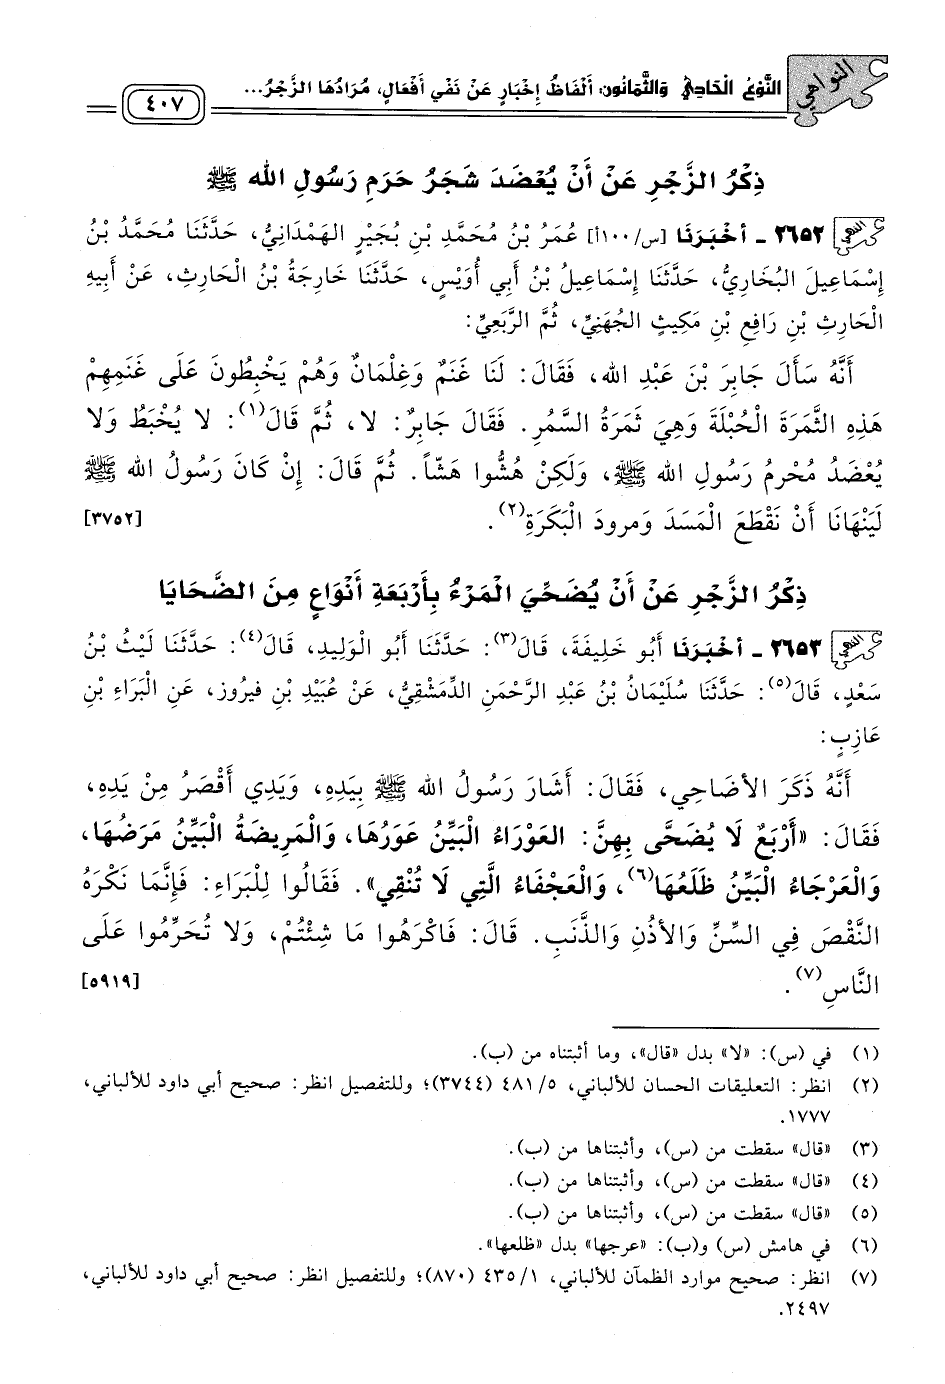 النواهي
النَّوْعُ الْحَادِي وَالثَّمَانُونَ: أَلْفَاظُ إِخْبَارٍ عَنْ نَفْيِ أَفْعَالٍ، مُرَادُهَا الزَّجْرُ...
٤٠٧
ذِكْرُ الزَّجْرِ عَنْ أَنْ يُعْضَدَ شَجَرُ حَرَمِ رَسُولِ الله ﷺ
٢٦٥٢ - أَخْبَرَنَا [س/١٠٠أ] عُمَرُ بْنُ مُحَمَّدِ بْنِ بُجَيْرٍ الهَمْدَانِيُّ، حَدَّثَنَا مُحَمَّدُ بْنُ
إِسْمَاعِيلَ البُخَارِيُّ، حَدَّثَنَا إِسْمَاعِيلُ بْنُ أَبِي أُوَيْسٍ، حَدَّثَنَا خَارِجَةُ بْنُ الْحَارِثِ، عَنْ أَبِيهِ
الْحَارِثِ بْنِ رَافِعِ بْنِ مَكِيثٍ الجُهَنِيِّ، ثُمَّ الرَّبَعِيِّ:
أَنَّهُ سَأَلَ جَابِرَ بْنَ عَبْدِ الله، فَقَالَ: لَنَا غَنَمٌ وَغِلْمَانٌ وَهُمْ يَخْبِطُونَ عَلَى غَنَمِهِمْ
هَذِهِ الثَّمَرَةَ الْحُبْلَةَ وَهِيَ ثَمَرَةُ السَّمُرِ. فَقَالَ جَابِرٌ: لا، ثُمَّ قَالَ(١): لا يُخْبَطُ وَلا
يُعْضَدُ مُحْرِمُ رَسُولِ الله ﷺ، وَلَكِنْ هُشُّوا هَشّاً. ثُمَّ قَالَ: إِنْ كَانَ رَسُولُ الله ﷺ
لَيَنْهَانَا أَنْ نَقْطَعَ الْمَسَدَ وَمرودَ الْبَكَرَةِ(٢). [٣٧٥٢]
ذِكْرُ الزَّجْرِ عَنْ أَنْ يُضَحِّيَ الْمَرْءُ بِأَرْبَعَةِ أَنْوَاعٍ مِنَ الضَّحَايَا
٢٦٥٣ - أَخْبَرَنَا أَبُو خَلِيفَةَ، قَالَ(٣): حَدَّثَنَا أَبُو الْوَلِيدِ، قَالَ(٤): حَدَّثَنَا لَيْثُ بْنُ
سَعْدٍ، قَالَ(٥): حَدَّثَنَا سُلَيْمَانُ بْنُ عَبْدِ الرَّحْمَنِ الدِّمَشْقِيُّ، عَنْ عُبَيْدِ بْنِ فيروز، عَنِ الْبَرَاءِ بْنِ
عَازِبٍ:
أَنَّهُ ذَكَرَ الأضَاحِي، فَقَالَ: أَشَارَ رَسُولُ الله ﷺ بِيَدِهِ، وَيَدِي أَقْصَرُ مِنْ يَدِهِ،
فَقَالَ: «أَرْبَعٌ لَا يُضَحَّى بِهِنَّ: العَوْرَاءُ الْبَيِّنُ عَوَرُهَا، وَالْمَرِيضَةُ الْبَيِّنُ مَرَضُهَا،
وَالْعَرْجَاءُ الْبَيِّنُ ظَلَعُهَا(٦)، وَالْعَجْفَاءُ الَّتِي لَا تُنْقِي». فَقَالُوا لِلْبَرَاءِ: فَإِنَّمَا نَكْرَهُ
النَّقْصَ فِي السِّنِّ وَالأذُنِ وَالذَّنَبِ. قَالَ: فَاكْرَهُوا مَا شِئْتُمْ، وَلا تُحَرِّمُوا عَلَى
النَّاسِ(٧). [٥٩١٩]
(١) في (س): «لا» بدل «قال»، وما أثبتناه من (ب).
(٢) انظر: التعليقات الحسان للألباني، ٤٨١/٥ (٣٧٤٤)؛ وللتفصيل انظر: صحيح أبي داود للألباني،
١٧٧٧.
(٣) «قال» سقطت من (س)، وأثبتناها من (ب).
(٤) «قال» سقطت من (س)، وأثبتناها من (ب).
(٥) «قال» سقطت من (س)، وأثبتناها من (ب).
(٦) في هامش (س) و(ب): «عرجها» بدل «ظلعها».
(٧) انظر: صحيح موارد الظمآن للألباني، ٤٣٥/١ (٨٧٠)؛ وللتفصيل انظر: صحيح أبي داود للألباني،
٢٤٩٧.